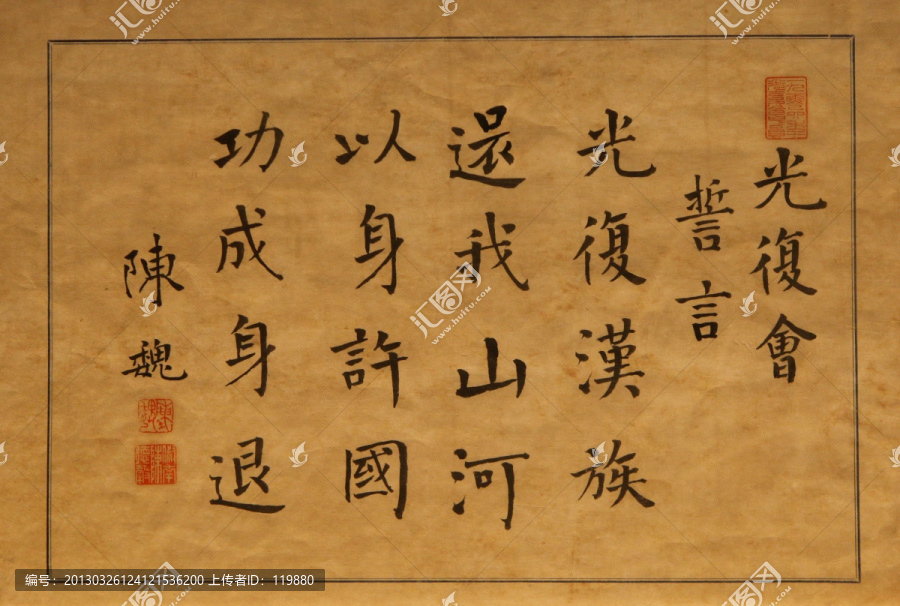 光復會
誓言
光復漢族
還我山河
以身許國
功成身退
陳魏
编号：20130326124121536200 上传者ID：119880
汇图网
www.huitu.com